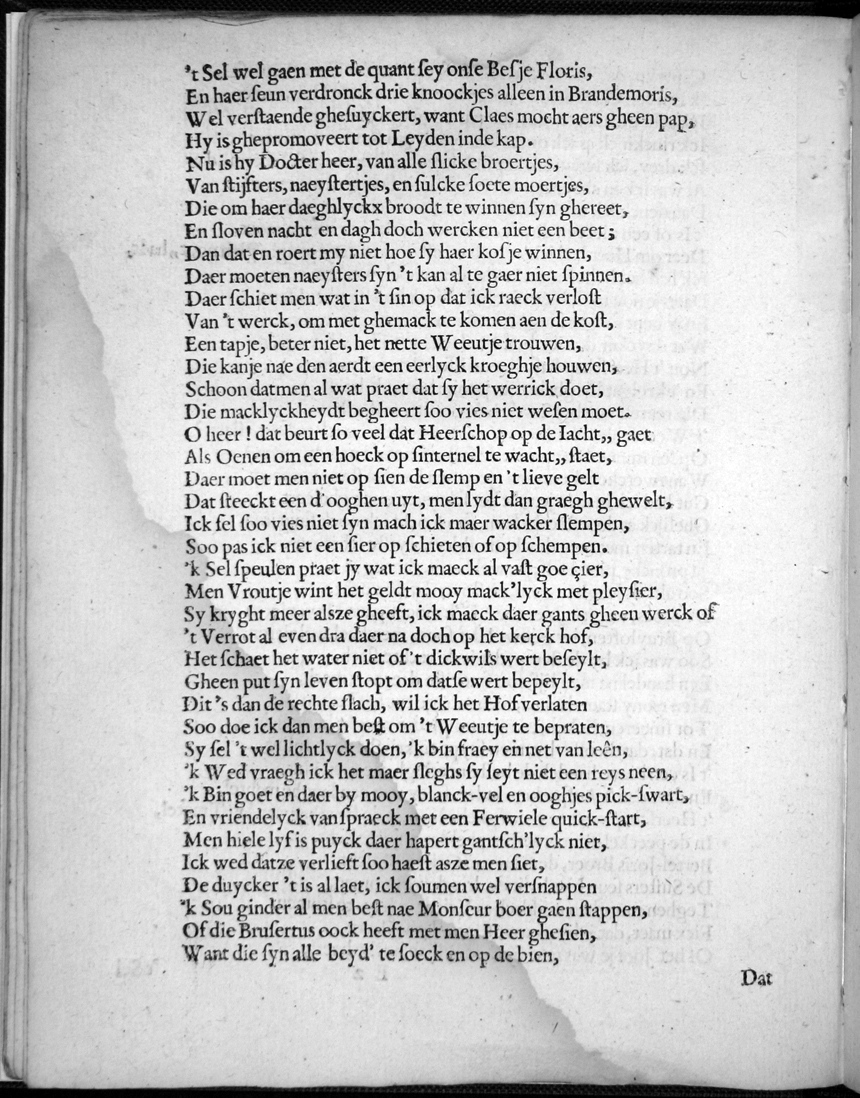 't Sel wel gaen met de quant ſey onſe Beſje Floris,
En haer ſeun verdronck drie knoockjes alleen in Brandemoris,
Wel verſtaende gheſuyckert, want Claes mocht aers gheen pap,
Hy is ghepromoveert tot Leyden inde kap.
Nu is hy Docter heer, van alle ſlicke broertjes,
Van ſtijfters, naeyſtertjes, en ſulcke ſoete moertjes,
Die om haer daeghlyckx broodt te winnen ſyn ghereet,
En ſloven nacht en dagh doch wercken niet een beet;
Dan dat en roert my niet hoe ſy haer koſje winnen,
Daer moeten naeyſters ſyn 't kan al te gaer niet ſpinnen.
Daer ſchiet men wat in 't ſin op dat ick raeck verloſt
Van 't werck, om met ghemack te komen aen de koſt,
Een tapje, beter niet, het nette Weeutje trouwen,
Die kanje nae den aerdt een eerlyck kroeghje houwen,
Schoon datmen al wat praet dat ſy het werrick doet,
Die macklyckheydt begheert ſoo vies niet weſen moet.
O heer ! dat beurt ſo veel dat Heerſchop op de Iacht,, gaet
Als Oenen om een hoeck op ſinternel te wacht,, ſtaet,
Daer moet men niet op ſien de ſlemp en 't lieve gelt
Dat ſteeckt een d'ooghen uyt, men lydt dan graegh ghewelt,
Ick ſel ſoo vies niet ſyn mach ick maer wacker ſlempen,
Soo pas ick niet een ſier op ſchieten of op ſchempen.
'k Sel ſpeulen praet jy wat ick maeck al vaſt goe çier,
Men Vroutje wint het geldt mooy mack'lyck met pleyſier,
Sy kryght meer alsze gheeft, ick maeck daer gants gheen werck of
't Verrot al even dra daer na doch op het kerck hof,
Het ſchaet het water niet of 't dickwils wert beſeylt,
Gheen put ſyn leven ſtopt om datſe wert bepeylt,
Dit 's dan de rechte ſlach, wil ick het Hof verlaten
Soo doe ick dan men beſt om 't Weeutje te bepraten,
Sy ſel 't wel lichtlyck doen, 'k bin fraey en net van leên,
'k Wed vraegh ick het maer ſleghs ſy ſeyt niet een reys neen,
'k Bin goet en daer by mooy, blanck-vel en ooghjes pick-ſwart,
En vriendelyck van ſpraeck met een Ferwiele quick-ſtart,
Men hiele lyf is puyck daer hapert gantſch'lyck niet,
Ick wed datze verlieft ſoo haeſt asze men ſiet,
De duycker 't is al laet, ick ſoumen wel verſnappen
'k Sou ginder al men beſt nae Monſeur boer gaen ſtappen,
Of die Bruſertus oock heeft met men Heer gheſien,
Want die ſyn alle beyd' te ſoeck en op de bien,
Dat